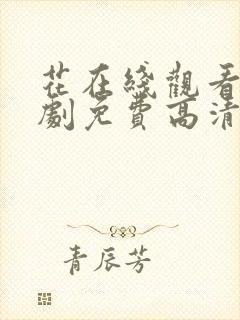 花在綫觀看
劇免費高清
青辰芳